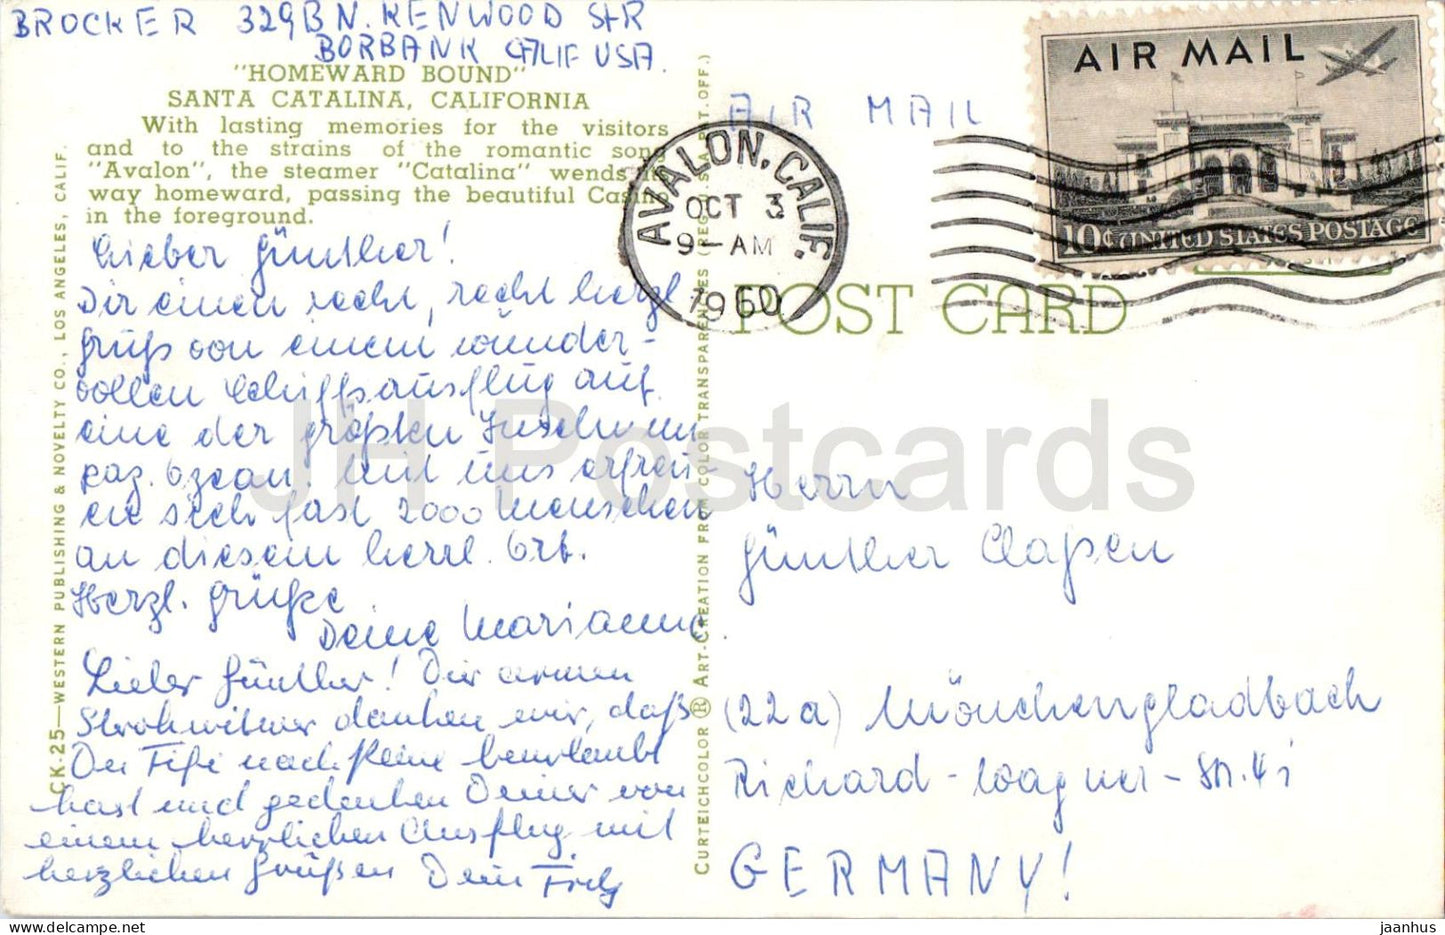 BROCKER 329 B N. KENWOOD STR
BORBANK CALIF USA.
"HOMEWARD BOUND"
SANTA CATALINA, CALIFORNIA
With lasting memories for the visitors
and to the strains of the romantic song
"Avalon", the steamer "Catalina" wends its
way homeward, passing the beautiful Casino
in the foreground.
Lieber Günther!
Dir einen recht, recht herzl.
Gruß von einem wunder-
vollen Schiffsausflug auf
eine der größten Inseln im
paz. Ozean. Mit uns erfreu-
en sich fast 2000 Menschen
an diesem herrl. Ort.
Herzl. Grüße
Deine Marianne.
Lieber Günther! Dir armen
Strohwitwer danken wir, daß
Du Fifi nach here beurlaubt
hast und gedenken Deiner von
einem herrlichen Ausflug mit
herzlichen Grüßen Dein Fritz
CK-25—WESTERN PUBLISHING & NOVELTY CO., LOS ANGELES, CALIF.
CURTEICHCOLOR ® ART-CREATION FROM COLOR TRANSPARENCIES (REG. U.S.A. PAT. OFF.)
AIR MAIL
AVALON, CALIF.
OCT 3
9-AM
1960
AIR MAIL
10¢ UNITED STATES POSTAGE
POST CARD
Herrn
Günther Claßen
(22a) Mönchengladbach
Richard-Wagner-Str. 41
GERMANY!
JH Postcards
jaanhus
jh-postcards.delcampe.net